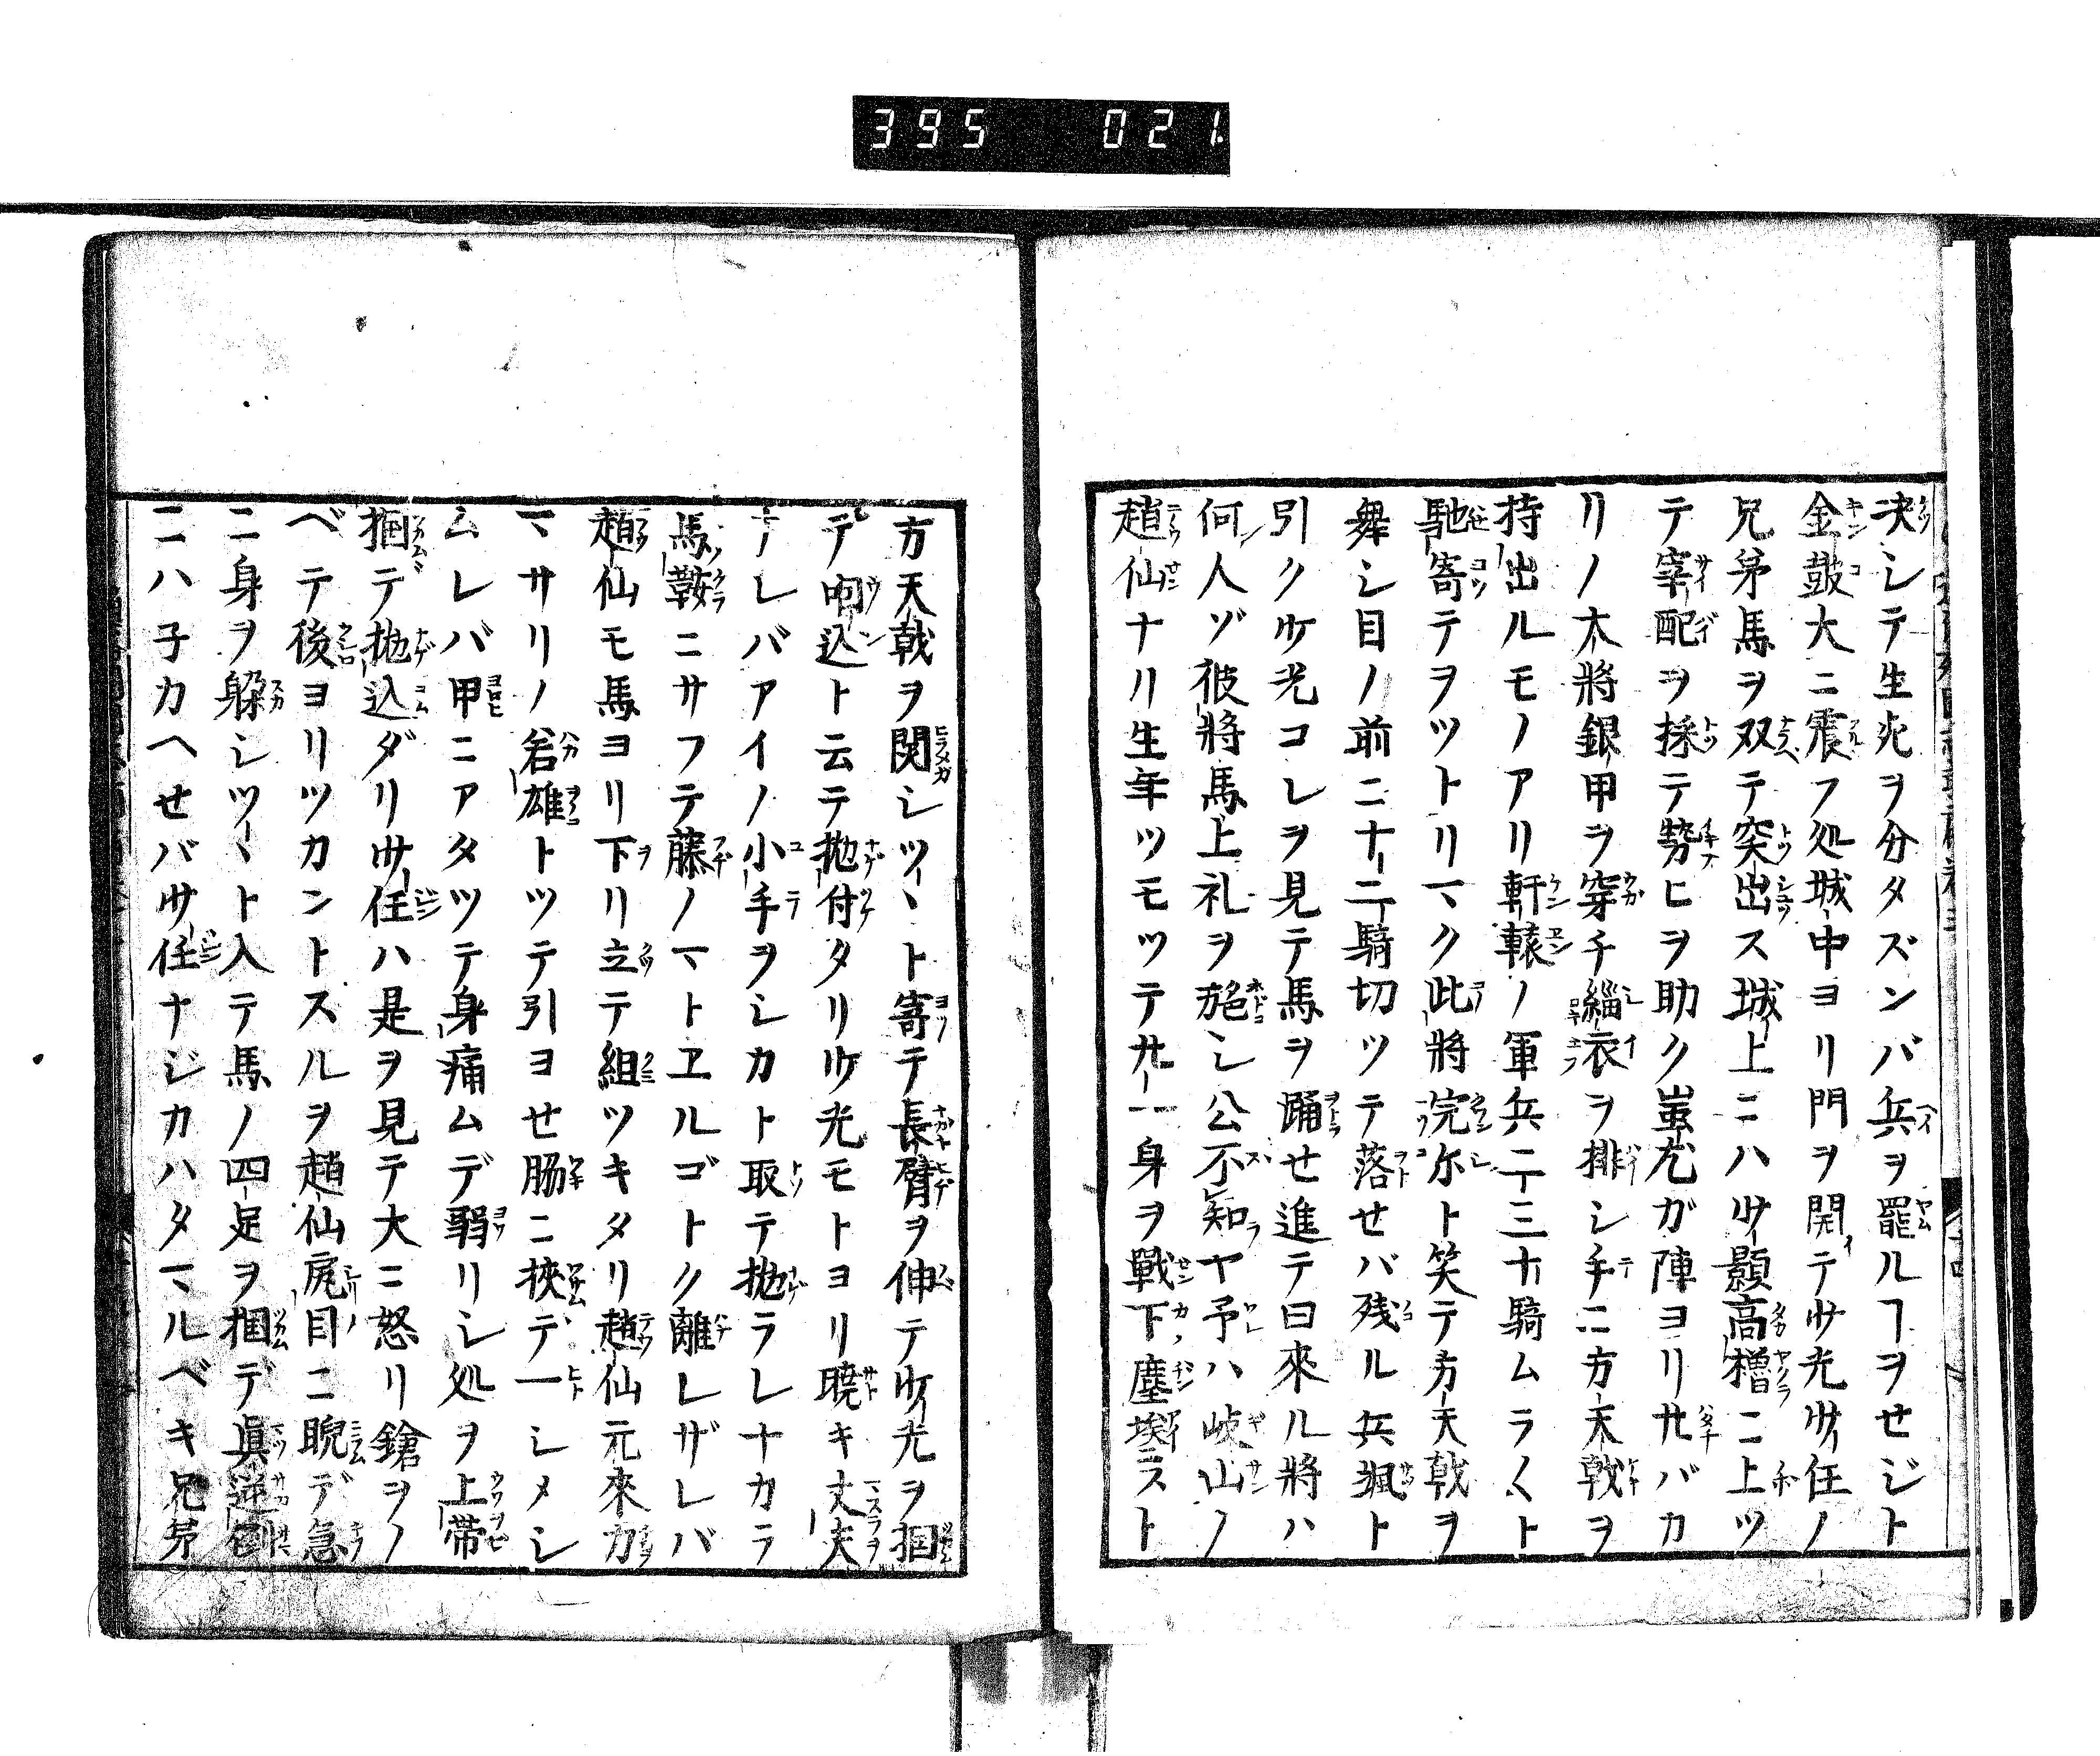 395 021
決シテ生死ヲ分タズンバ兵ヲ罷ルヿヲせジト
金鼓大ニ震フ処城中ヨリ門ヲ開テ光任ノ
兄弟馬ヲ双テ突出ス城上ニハ顥高櫓ニ上ツ
テ宰配ヲ採テ勢ヒヲ助ク蚩尤ガ陣ヨリ廿バカ
リノ大將銀甲ヲ穿チ緇衣ヲ排シ手ニ方天戟ヲ
持出ルモノアリ軒轅ノ軍兵二三十騎ムラ〱ト
馳寄テヲツトリマク此將浣尓ト笑テ方天戟ヲ
舞シ目ノ前ニ十二騎切ツテ落せバ残ル兵颯ト
引ク光コレヲ見テ馬ヲ踊せ進テ曰來ル將ハ
何人ゾ彼將馬上礼ヲ施シ公不知ヤ予ハ岐山ノ
趙仙ナリ生年ツモツテ廿一身ヲ戰下塵埃ニスト
方天戟ヲ閃シツヽト寄テ長臂ヲ伸テ光ヲ掴
デ込ト云テ抛付タリ光モトヨリ暁キ丈夫
ナレバアイノ小手ヲシカト取テ抛ラレナカラ
馬鞍ニサフテ藤ノマトヱルゴトク離レザレバ
趙仙モ馬ヨリ下リ立テ組ツキタリ趙仙元來力
マサリノ若雄トツテ引ヨせ脇ニ挾テ一シメシ
ムレバ甲ニアタツテ身痛ムデ弱リシ処ヲ上帯
掴デ抛込ダリ任ハ是ヲ見テ大ニ怒リ鎗ヲノ
ベテ後ヨリツカントスルヲ趙仙尻目ニ睨デ急
ニ身ヲ躱シツヽト入テ馬ノ四足ヲ掴デ眞逆倒
ニハ子カヘせバ任ナジカハタマルベキ兄弟